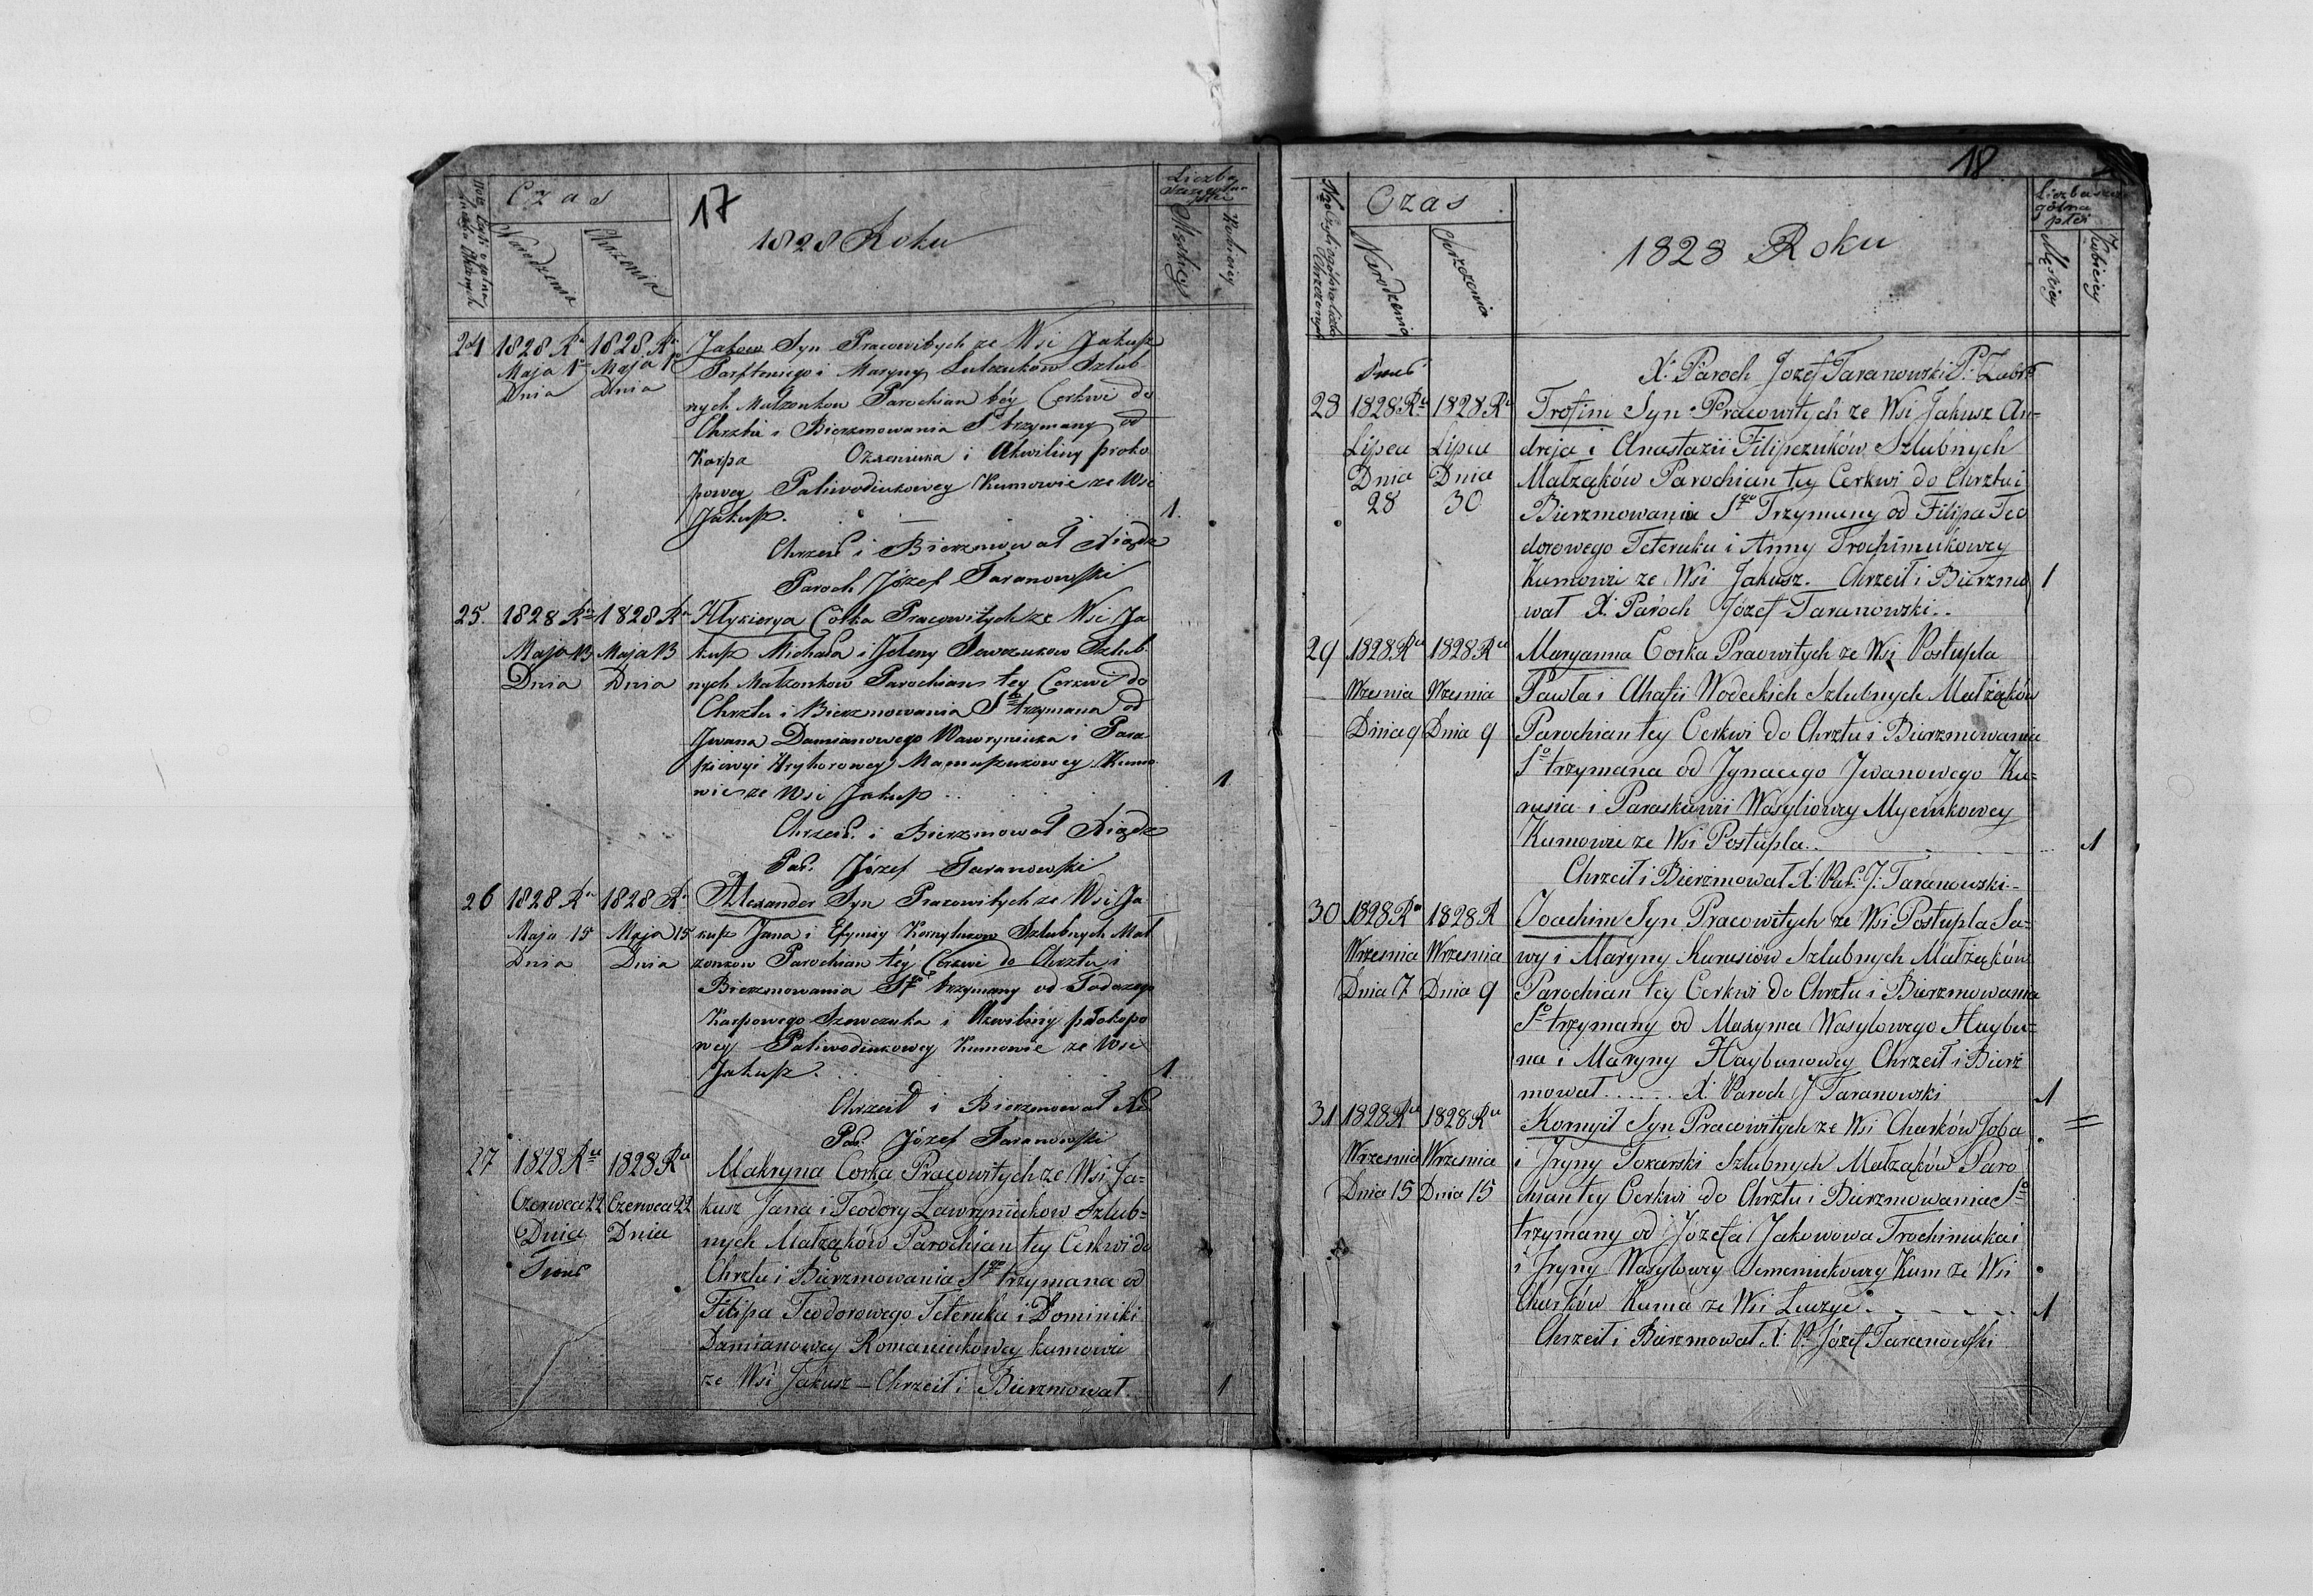 17
Czas
Narodzenia
Chrzenia
1828 Roku
Liczba
Męskiey
Kobiecey
24
1828 Ru
Maja 1o
Dnia
1828 Ru
Maja 1o
Dnia
Jakow Syn Pracowitych ze Wsi Jakusz
Parfteniego i Maryny Szlub
nych Małzonkow Parochian téy Cerkwi do
Chrztu i Bierzmowania So trzymany od
Karpa i Akwiliny proko
powey Paliwodiukowey Kumowie ze Wsi
Jakusz.
1.
Chrzcił i Bierzmował Xiądz
Paroch Józef Taranowski
25.
1828 Ru
Maja 13
Dnia
1828 Ru
Maja 13
Dnia
Hlykierya Córka Pracowitych ze Wsi Ja
kusz Michała i Jeleny Szlub
nych Małzonkow Parochian tey Cerkwi do
Chrztu i Bierzmowania So trzymana od
Jwana Damianowego Wawryniuka i Para
skiewyi Hryhorowey Kumo
wie ze Wsi Jakusz
1
Chrzcił i Bierzmował Xiądz
Par. Józef Taranowski
26
1828 Ru
Maja 15
Dnia
1828 Ru
Maja 15
Dnia
Alexander Syn Pracowitych ze Wsi Ja
kusz Jana i Efymiy Szlubnych Mał
zonkow Parochian téy Cerkwi do Chrztu i
Bierzmowania Sgo trzymany od
Karpowego Szewczuka i Akwiliny prokopo
wey Paliwodiukowey Kumowie ze Wsi
Jakusz.
1
Chrzcił i Bierzmował Xd
Par. Józef Taranowski
27
1828 Ru
Czerwca 22
Dnia
1828 Ru
Czerwca 22
Dnia
Makryna Corka Pracowitych ze Wsi Ja=
kusz Jana i Teodory Ławryniukow Szlub=
nych Małząków Parochian tey Cerkwi do
Chrztu i Bierzmowania Sgo trzymana od
Filipa Teodorowego Teteruka i Dominiki
Damianowey Romaniukowey kumowie
ze Wsi Jakusz – Chrzcił i Bierzmował.
1
18
Czas
Narodzenia
Chrzczenia
1828 Roku
Liczba szcze
gólna
płci
Męskiey
Kobiecey
X. Paroch Jozef Taranowski P.
28
1828 Ru
Lipca
Dnia
28
1828 Ru
Lipca
Dnia
30
Trofim Syn Pracowitych ze Wsi Jakusz An=
dreja i Anastazii Filipczuków Szlubnych
Małząków Parochian tey Cerkwi do Chrztu i
Bierzmowania Sgo Trzymany od Filipa Teo
dorowego Teteruka i Anny Trochimukowey
Kumowie ze Wsi Jakusz. Chrzcił i Bierzmo
wał X. Paroch Józef Taranowski..
1
29
1828 Ru
Wzesnia
Dnia 9
1828 Ru
Wzesnia
Dnia 9
Maryanna Corka Pracowitych ze Wsi Postupla
Pawła i Ahafii Wodeckich Szlubnych Małżąków
Parochian tey Cerkwi do Chrztu i Bierzmowania
So trzymana od Jgnacego Jwanowego Ku=
rusia i Paraskiewii Wasyliowey
Kumowie ze Wsi Postupla..
1
Chrzcił i Bierzmował X. Par. J. Taranowski.
30
1828 Ru
Wrzesnia
Dnia 7
1828 R
Wrzesnia
Dnia 9
Joachim Syn Pracowitych ze Wsi Postupla Sa=
wy i Maryny Kurusiow Szlubnych Małżąków
Parochian tey Cerkwi do Chrztu i Bierzmowania
So trzymany od Maxyma Wasylowego Haybu=
na i Maryny Haybunowey Chrzcił i Bierz
mował...... X. Paroch J Taranowski
1
31
1828 Ru
Wrzesnia
Dnia 15
1828 Ru
Wrzesnia
Dnia 15
Kornyił Syn Pracowitych ze Wsi Charków Joba
i Jryny Tokarski Szlubnych Małząków Paro
chian tey Cerkwi do Chrztu i Bierzmowania So
trzymany od Jozefa Jakowowa Trochimuka i
i Jryny Wasylowey Semeniukowey Kum ze Wsi
Charków Kuma ze Wsi
1
Chrzcił i Bierzmował X. P. Józef Taranowski